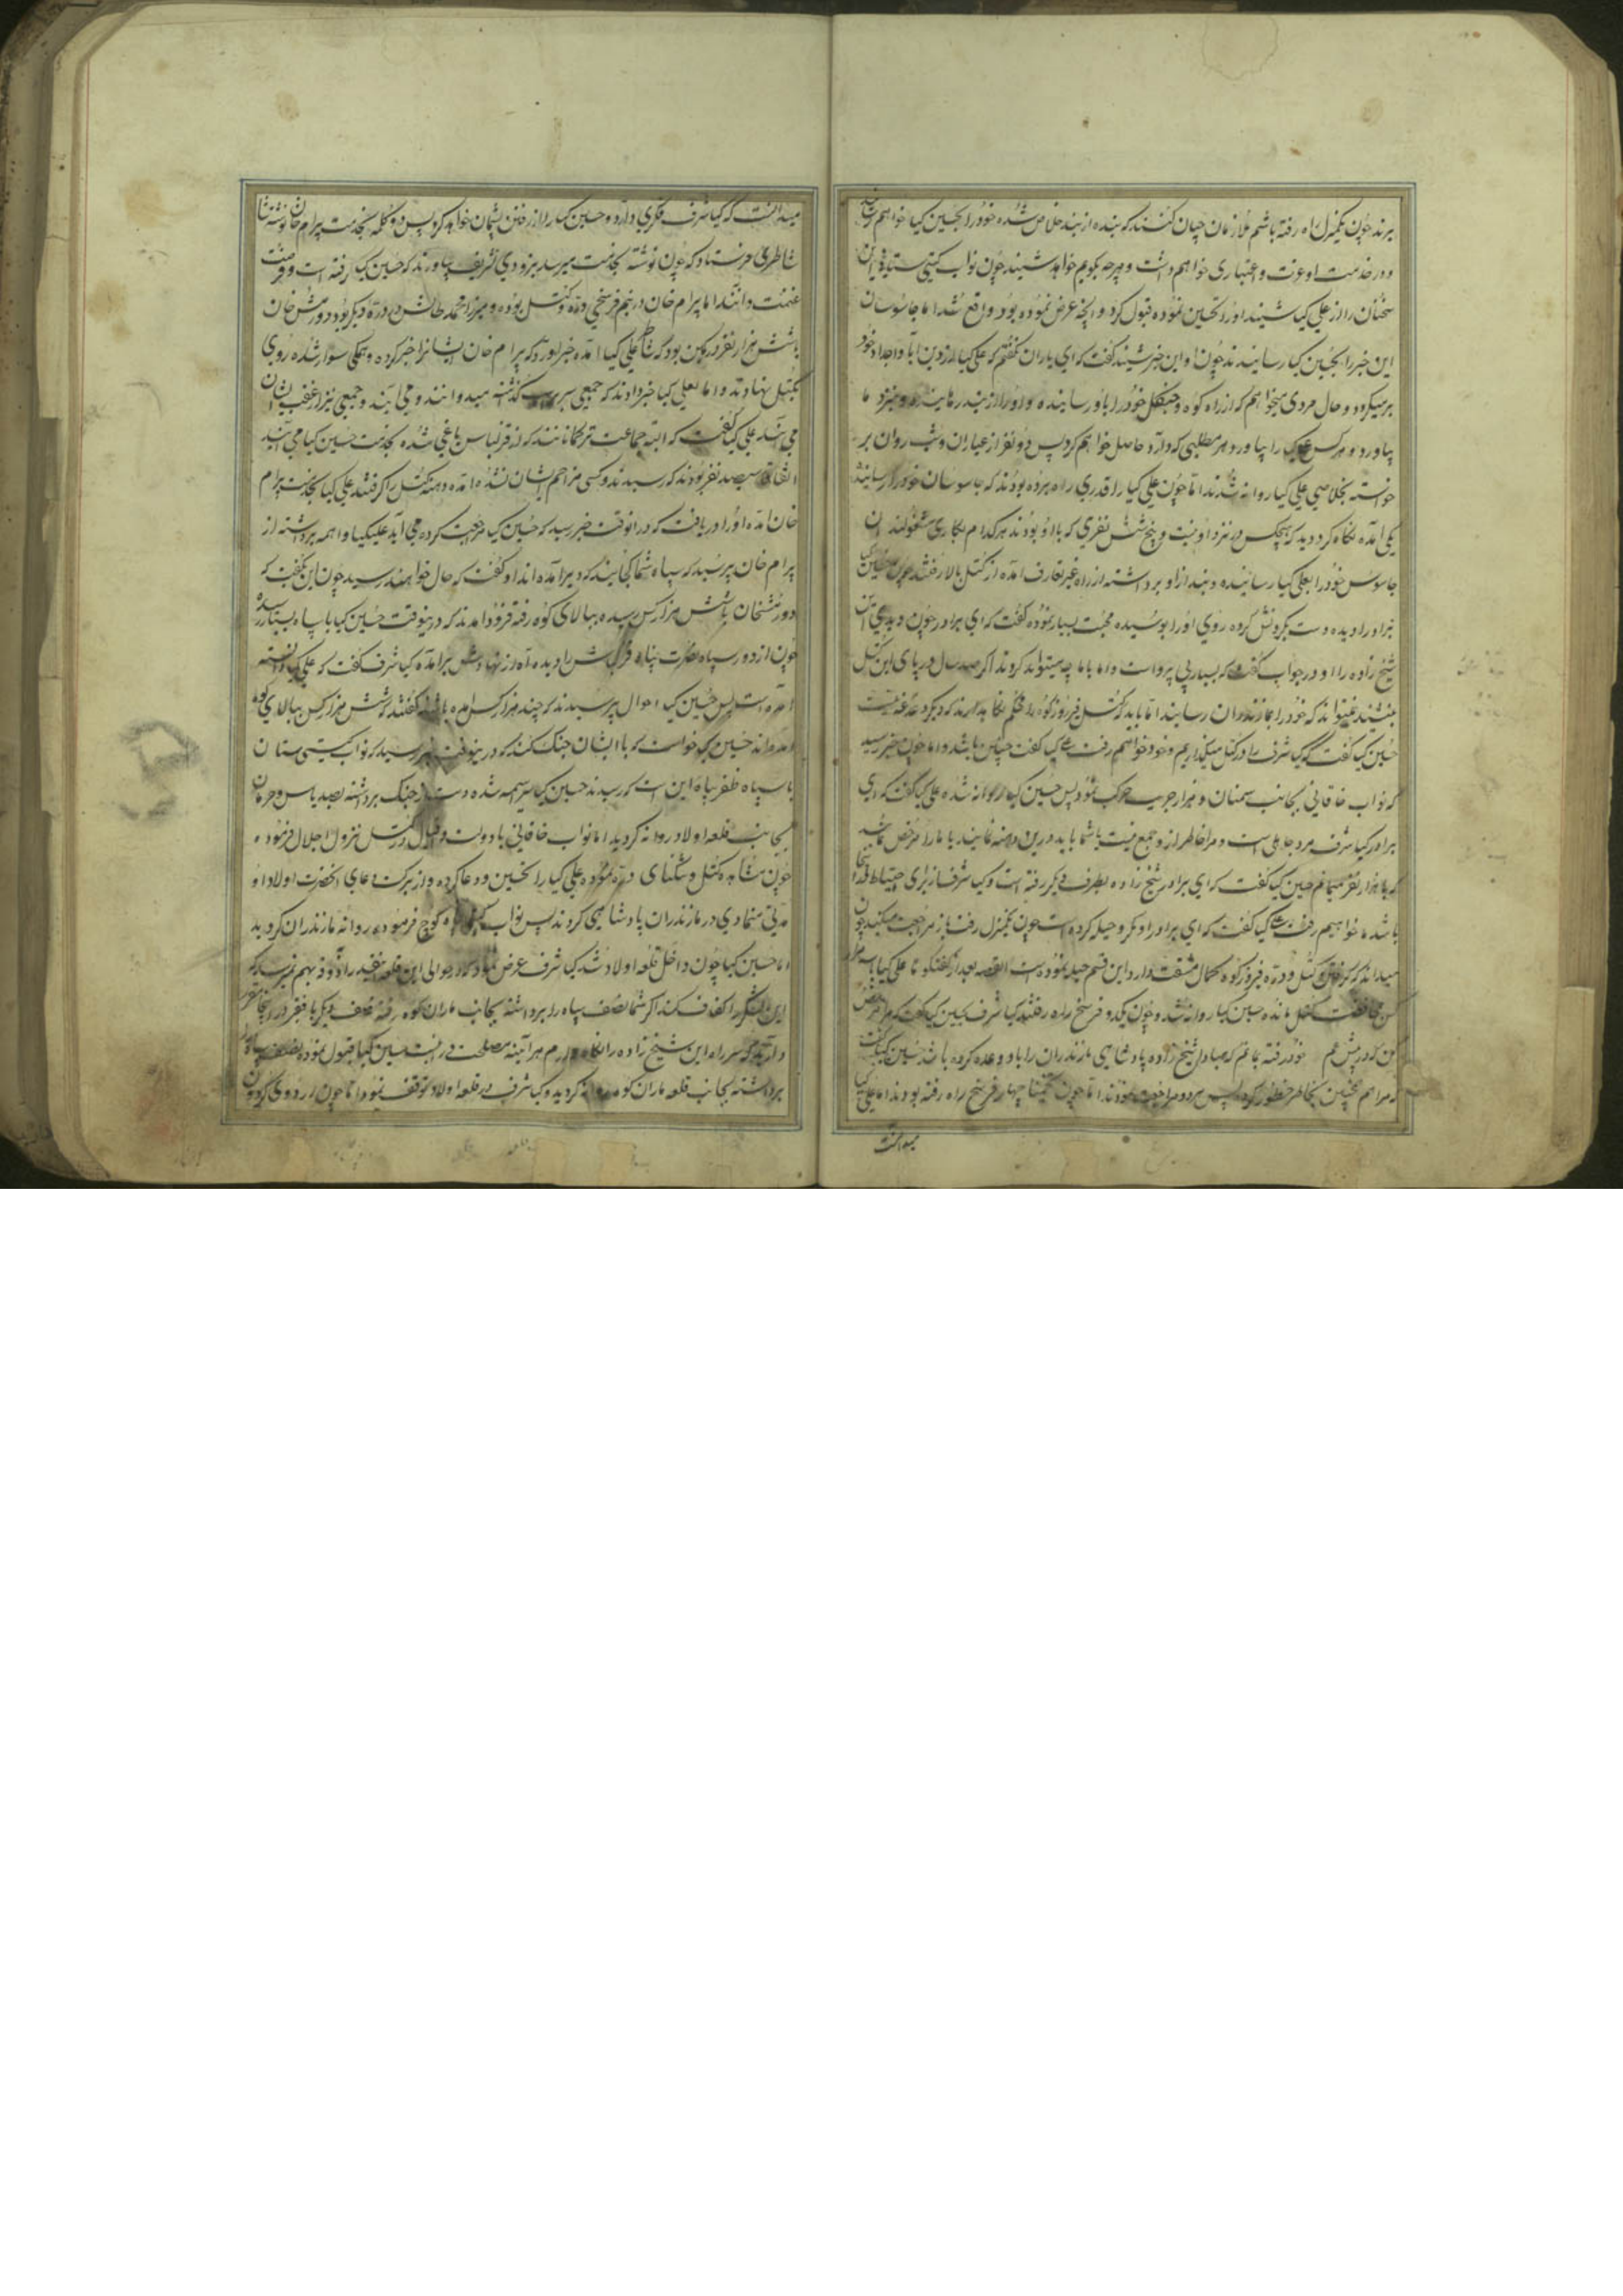 برند چون یکمنزل راه رفته باشم ملازمان چنان کنند که بنده از بند خلاص شده خود را بحسین کیا خواهم رسانید
و در خدمت او عزت و اعتباری خواهم داشت و هرچه بگویم خواهد شنید چون نواب کیتی ستانی این
سخنان را از علی کیا شنیدند او را تحسین نموده قبول کرد و آنچه عرض نموده بود واقع شد اما جاسوسان
این خبر را بحسین کیا رسانیدند چون او این خبر شنید گفت که ای یاران نگفتم که علی کیا از دین آبا و اجداد خود
برنمیکردد و حال مردی میخواهم که از راه کوه و جنگل خود را باو رسانیده و او را از بند رهانیده و بنزد ما
بیاورد و هر کس علی کیا را بیاورد هر مطلبی که دارد حاصل خواهم کرد پس دو نفر از عیاران و شب روان بر
خواسته بخلاصی علی کیا روانه شدند اما چون علی کیا را قدری راه برده بودند که جاسوسان خود را رسانیدند
یکی آمده نگاه کرد دید که هیچکس در نزد او نیست و پنج شش نفری که با او بودند هر کدام بکاری مشغولند آن
جاسوس خود را بعلی کیا رسانیده و بند از او برداشته از راه غیر تعارف آمده از کتل بالا رفتند چون حسین کیا
برادر را دیده دست بگردنش کرده روی او را بوسیده محبت بسیار نموده گفت که ای برادر چون دیدی این
شیخ زاده را او در جواب گفت که بسیار بی پرواست و اما با ما چه میتواند کرد و اگر صد سال در پای این کتل
بنشیند نمیتواند که خود را بمازندران رساند اما باید که کتل فیروزکوه را محکم نگاه بدارند که دیگر دغدغه نیست
حسین کیا گفت که کیا شرف را در کتل میگذاریم و خود خواهیم رفت علی کیا گفت چنین باشد و اما چون خبر رسید
که نواب خاقانی بجانب سمنان و هزار جریب حرکت نمود پس حسین کیا روانه شده علی کیا گفت که ای
برادر کیا شرف مرد جاهلی است و مرا خاطر از او جمع نیست یا شما باید درین دهنه نمانید یا ما را مرخص نمائید
که با هزار نفر بمانم حسین کیا گفت که ای برادر شیخ زاده بطرف دیگر رفته است و کیا شرف از برای احتیاط در اینجا
باشد ما خواهیم رفت علی کیا گفت که ای برادر او مکر و حیله کرده است چون یکمنزل رفت باز مراجعت میکند چون
میداند که گرفتن کتل و دره فیروزکوه کمال مشقت دارد این قسم حیله نموده است القصه بعد از گفتگو تا علی کیا با سه هزار
کس محافظت کتل مانده حسین کیا روانه شد و چون یکدو فرسخ راه رفتند کیا شرف بحسین کیا گفت که مرا مرخص
کن که در پیش هم خود رفته بمانم که مبادا شیخ زاده پادشاهی مازندران را باو وعده کرده باشد حسین کیا گفت
که مرا هم همچنین بخاطر خطور کرد پس هر دو مراجعت نمودند اما چون تخمینا چهار فرسخ راه رفته بودند اما علی کیا
میدانست
میدانست که کیا شرف فکری دارد و حسین کیا را از رفتن پشیمان خواهد کرد پس دو کلمه بخدمت بیرام خان نوشته با
شاطری فرستاد که چون نوشته بخدمت میرسد بزودی تشریف بیاورند که حسین کیا رفته است و فرصت
غنیمت دانند اما بیرام خان در نیم فرسخی دره کتل بوده و میرزا محمد طالش در دره دیگر بود و دورمش خان
با شش هزار نفر در کمین بود که شاطر علی کیا آمده خبر آورد که بیرام خان ایشانرا خبر کرده و همکی سوار شده روی
بکتل نهادند و اما بعلی کیا خبر دادند که جمعی سر بریسب گذشته میدوانند و می آیند و جمعی نیز از عقب ایشان
می آیند علی کیا گفت که البته جماعت ترکمانانند که از قزلباس یاغی شده بخدمت حسین کیا می آیند
اتفاقا سیصد نفر بودند که رسیدند و کسی مزاحم ایشان نشده آمده دهنه کتل را گرفتند علی کیا بخدمت بیرام
خان آمده او را دریافت که در آنوقت خبر رسید که حسین کیا مراجعت کرده می آید علیکیا واهمه برداشته از
بیرام خان پرسید که سپاه شما کجایند که دیر آمده اند او گفت که حال خواهند رسید چون این بگفت که
دورمشخان با شش هزار کس رسیده ببالای کوه رفته فرود آمدند که درینوقت حسین کیا با سپاه بسیار رسیده
چون از دور سپاه نصرت پناه قزلباش را دیده آه از نهادش برآمده کیا شرف گفت که علی کیا دانسته
آمده است پس حسین کیا احوال پرسیدند که چند هزار کس آمده باشند گفتند که شش هزار کس ببالای کوه
آمده اند حسین کیا خواست که با ایشان جنگ کند که درینوقت خبر رسید که نواب کیتی ستان
با سپاه ظفر پناه این است که رسیدند حسین کیا سراسمه شده دست از جنگ برداشته بصد یاس و حرمان
بجانب قلعه اولاد روانه کردید اما نواب خاقانی با دولت و اقبال در کتل نزول اجلال فرموده
چون مشاهده کتل و تنگنای دره نموده علی کیا را تحسین و دعا کرده و از برکت دعای آنحضرت اولاد او
مدتی متمادی در مازندران پادشاهی کردند پس نواب کیتی پناه کوچ فرموده روانه مازندران کردید
اما حسین کیا چون داخل قلعه اولاد شد کیا شرف عرض نمود که در حوالی این قلعه اینقدر آذوقه بهم نمیرسد که
این لشکر را کفاف کند اگر شما نصف سپاه را برداشته بجانب ماران کوه رفته نصف دیگر با فقیر در اینجا مقرر
دارید که سر راه این شیخ زاده را نگاه دارم هر آینه مصلحت در اینست حسین کیا قبول نموده نصف سپاه را
برداشته بجانب قلعه ماران کوه روانه کردید و کیا شرف در قلعه اولاد توقف نمود اما چون اردوی کردون